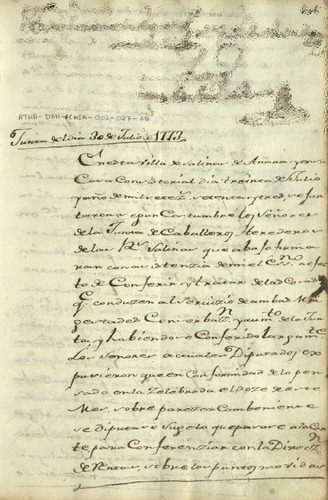 ATHA-DAH-FCHSA-002-027-06
Junta de el dia 30 de Julio de 1773
En esta Villa de Salinas de Añana y en su
Casa Consistorial dia treinta de Julio
y año de mil setez.s setenta y tres se Jun
taron segun Costumbre los Señores
de la Junta de Caballeros Herederos
de las R.s Salinas que abajo firma
ran con asistencia de mi el Es.no a efec
to de Conferir y tratar de las Cosas
q. conduzen al Servicio de ambas Ma
gestades Conserbaz.n y aum.to de la Jun
ta, y habiendose Conferido largam.te
Los Señores actuales Diputados ex
pusieron que en Conformidad de lo pen
sado en la Zelebrada el doze de este
Mes, sobre parezer Combeniente
se diputase Sugeto que pasase a la Cor
te para Conferenziar con la Direcz.n
de Rentas, sobre los puntos movidos